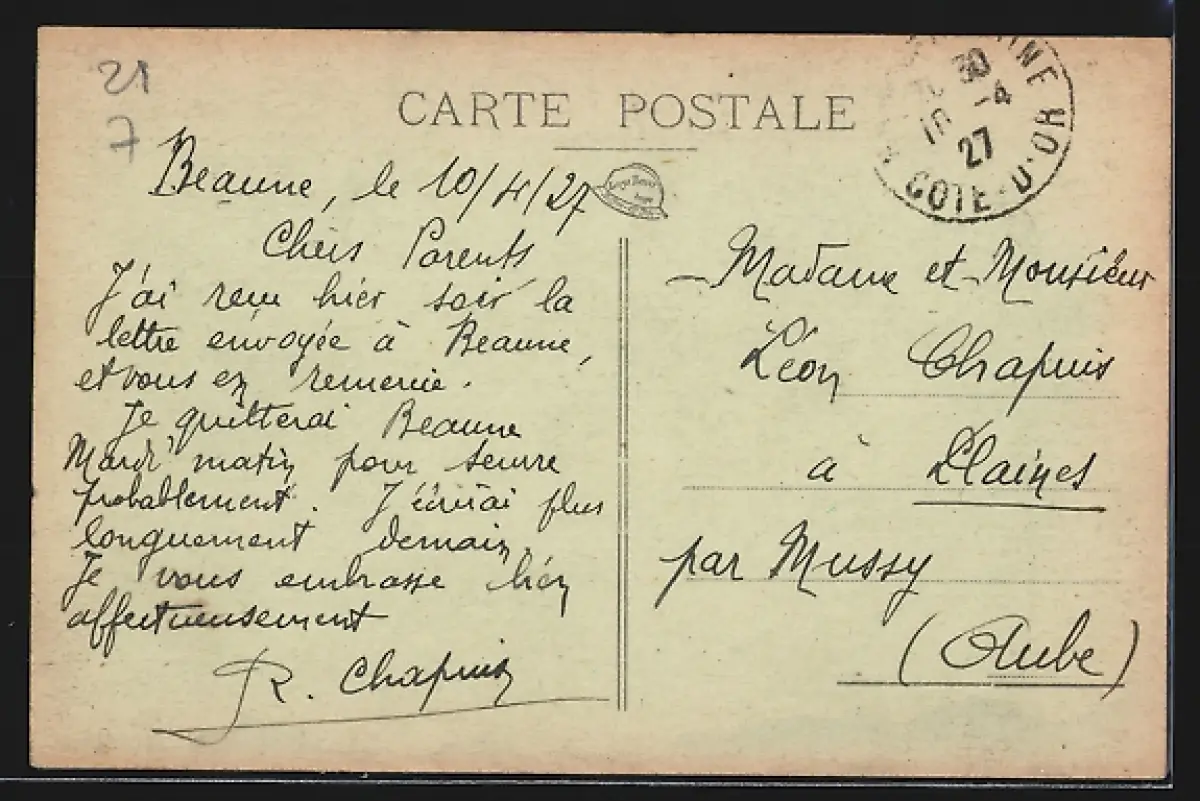 21
7
CARTE POSTALE
Beaune, le 10/4/27
Chers Parents
J'ai reçu hier soir la
lettre envoyée à Beaune,
et vous en remercie.
Je quitterai Beaune
Mardi matin pour Seurre
probablement. J'écrirai plus
longuement demain.
Je vous embrasse bien
affectueusement
R. Chapuis
30
10 -4
27
COTE-D'OR
Madame et Monsieur
Léon Chapuis
à Plaines
par Mussy
(Aube)